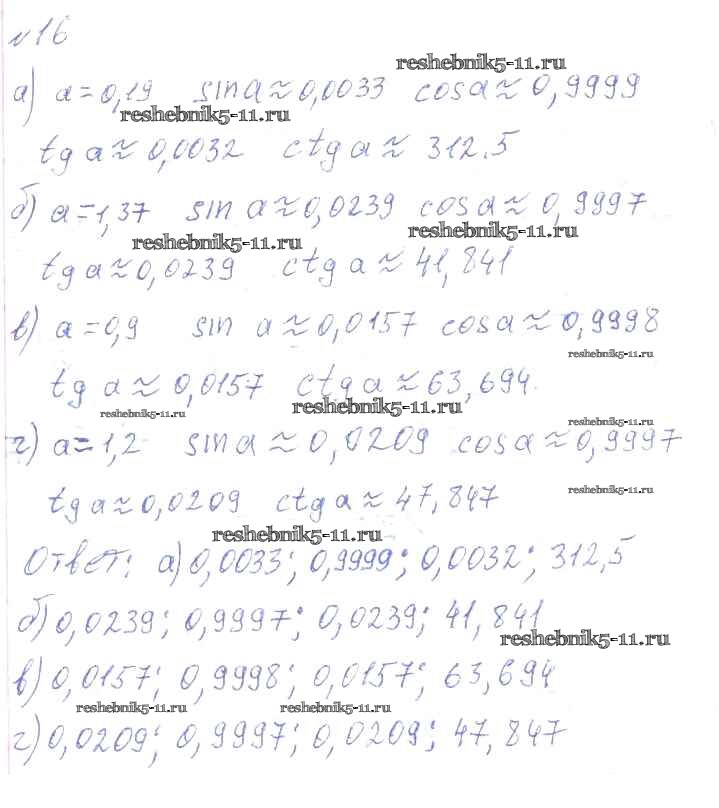 №16
reshebnik5-11.ru
а) a=0,19 sin a≈0,0033 cos a≈0,9999
reshebnik5-11.ru
tg a≈0,0032 ctg a≈ 312.5
б) a=1,37 sin a≈0,0239 cos a≈ 0,9997
reshebnik5-11.ru reshebnik5-11.ru
tg a≈0,0239 ctg a≈ 41,841
в) a=0,9 sin a≈0,0157 cos a≈ 0,9998
reshebnik5-11.ru
tg a≈ 0,0157 ctg a≈63,694
reshebnik5-11.ru reshebnik5-11.ru
reshebnik5-11.ru
г) a=1,2 sin a≈0,0209 cos a≈0,9997
reshebnik5-11.ru
tg a≈0,0209 ctg a≈ 47,847
reshebnik5-11.ru
Ответ: а) 0,0033; 0,9999; 0,0032; 312,5
б) 0,0239; 0,9997; 0,0239; 41,841
reshebnik5-11.ru
в) 0,0157; 0,9998; 0,0157; 63,694
reshebnik5-11.ru reshebnik5-11.ru
г) 0,0209; 0,9997; 0,0209; 47,847